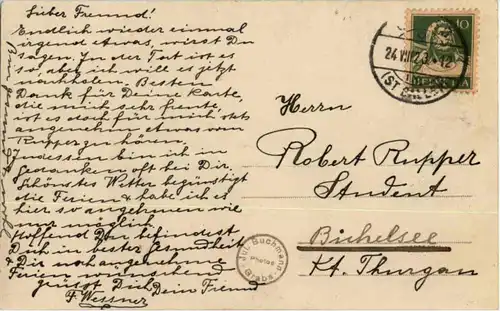 Lieber Freund!
Endlich wieder einmal
irgend etwas, wirst Du
sagen. In der Tat ist es
so, aber ich will es jetzt
nachholen. Besten
Dank für Deine Karte,
die mich sehr freute,
ist es doch für mich stets
angenehm etwas vom
Rupper zu hören.
Indessen bin ich in
Gedanken oft bei Dir.
Schönstes Wetter begünstigt
die Ferien & habe ich es
hier so angenehm wie
nur möglich.
Hoffend Du befindest
Dich in bester Gesundheit
& Dir noch angenehme
Ferien wünschend
grüsst Dich Dein Freund
F. Wessner
10
HELVETIA
24.VII.23
12
ST. GALLEN
Herrn
Robert Rupper
Student
Bichelsee
Kt. Thurgau
Jul. Buchmann
Photos
Grabs